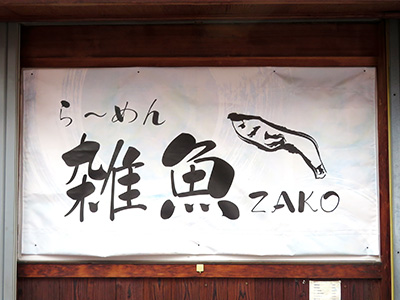 ら〜めん
雑魚
ZAKO